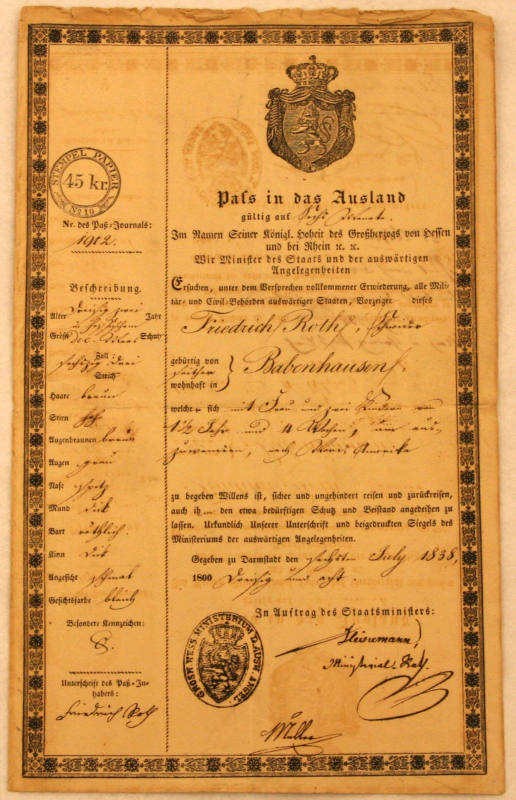 STEMPEL PAPIER
45 kr.
No 10
Nr. des Paß-Journals:
1902.
Beschreibung.
Alter Dreißig zwei Jahr
Größe Schuh
Zoll
sechszig drei
Strich
Haare braun
Stirn
Augenbraunen braun
Augen grau
Nase spitz
Mund dick
Bart röthlich.
Kinn dick
Angesicht schmal
Gesichtsfarbe bleich
Besondere Kennzeichen:
Unterschrift des Paß-In-
habers:
Friedrich Roth
Paſs in das Ausland
gültig auf Sechs Monate.
Im Namen Seiner Königl. Hoheit des Großherzogs von Hessen
und bei Rhein ꝛc. ꝛc.
Wir Minister des Staats und der auswärtigen
Angelegenheiten
Ersuchen, unter dem Versprechen vollkommener Erwiederung, alle Mili-
tär- und Civil-Behörden auswärtiger Staaten, Vorzeiger dieses
Friedrich Roth,
gebürtig von
seither
wohnhaft in
Babenhausen,
welcher sich mit Frau und zwei Kindern von
1½ Jahr und 4 Wochen, um aus-
zuwandern, nach Nord-Amerika
zu begeben Willens ist, sicher und ungehindert reisen und zurückreisen,
auch ihm den etwa bedürftigen Schutz und Beistand angedeihen zu
lassen. Urkundlich Unserer Unterschrift und beigedruckten Siegels des
Ministeriums der auswärtigen Angelegenheiten.
Gegeben zu Darmstadt den sechsten July 1838,
1800 Dreißig und acht.
In Auftrag des Staatsministers:
GROSH. HESS. MINISTERIUM D. AUSW. ANGEL.
Ministerial-Rath.
Müller